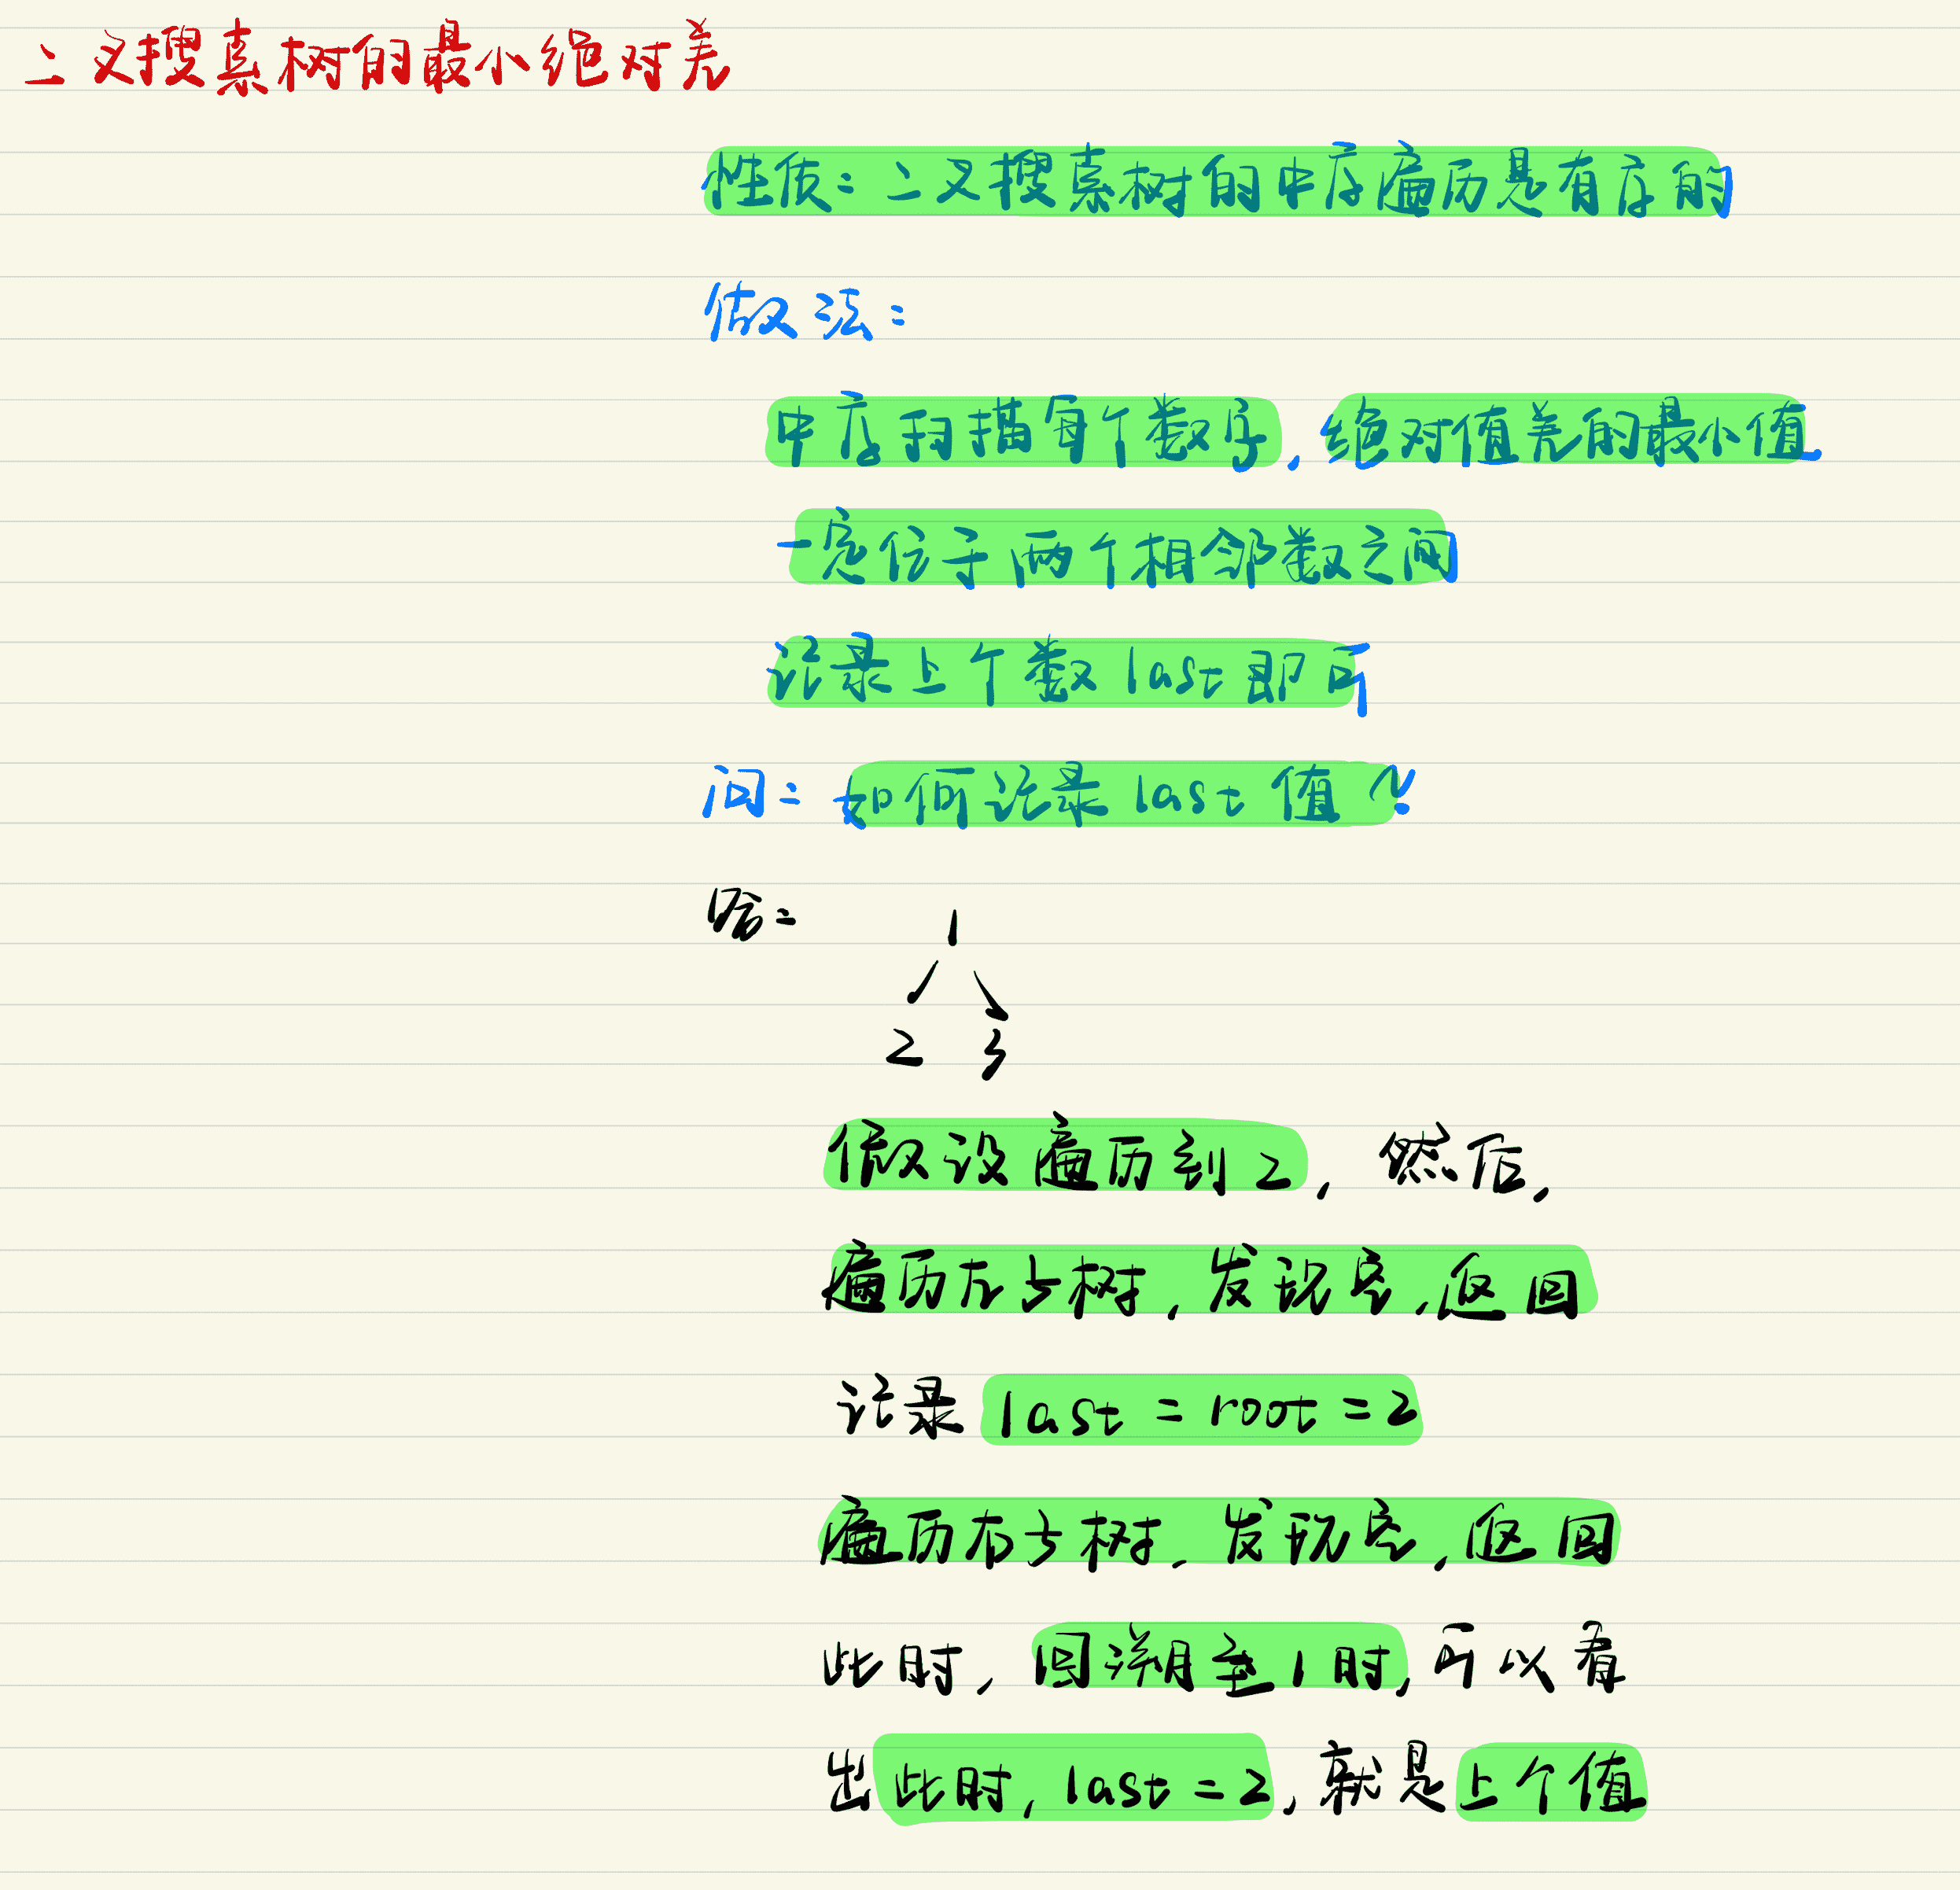 二叉搜索树的最小绝对差
性质：二叉搜索树的中序遍历是有序的
做法：
中序扫描每个数字，绝对值差的最小值
一定位于两个相邻数之间
记录上个数last即可
问：如何记录last值？
答：
1
2 3
假设遍历到2，然后，
遍历左子树，发现空，返回
记录 last = root = 2
遍历右子树，发现空，返回
此时，回溯至1时，可以看
出此时，last = 2，就是上个值